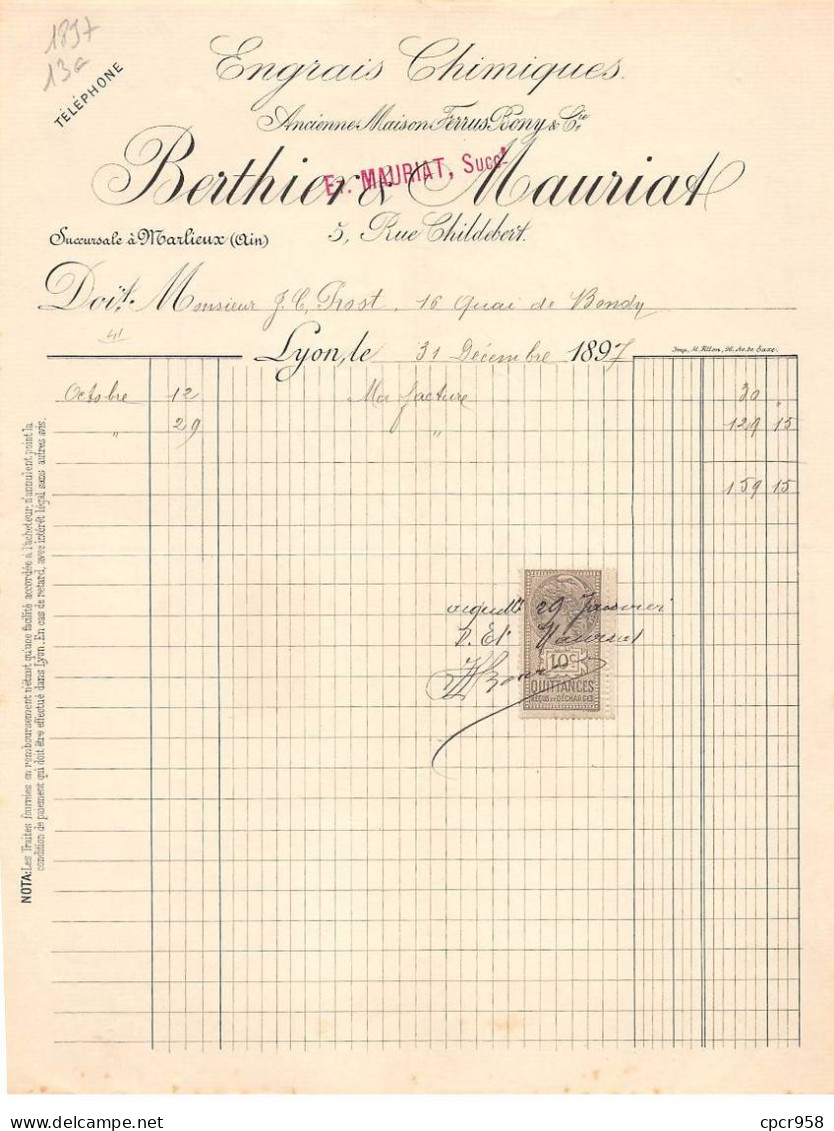 1897
13c
TÉLÉPHONE
Engrais Chimiques.
Ancienne Maison Ferrus Bony & Cie
Berthier & Mauriat
Et. MAURIAT, Succr
Succursale à Marlieux (Ain)
5, Rue Childebert.
Doit Monsieur J. C. Prost, 16 Quai de Bondy
41
Lyon, le 31 Décembre 1897
Imp. M. Fillon, 26, Av. de Saxe.
Octobre 12 Ma facture 30 "
" 29 " 129 15
159 15
NOTA: Les Traites fournies en remboursement n'étant qu'une facilité accordée à l'acheteur, n'annulent point la
condition de paiement qui doit être effectué dans Lyon. En cas de retard, avec intérêt légal sans autres avis.
29 Janvier
P. Et Mauriat
10c
QUITTANCES
REÇUS ET DÉCHARGES
cpcr958